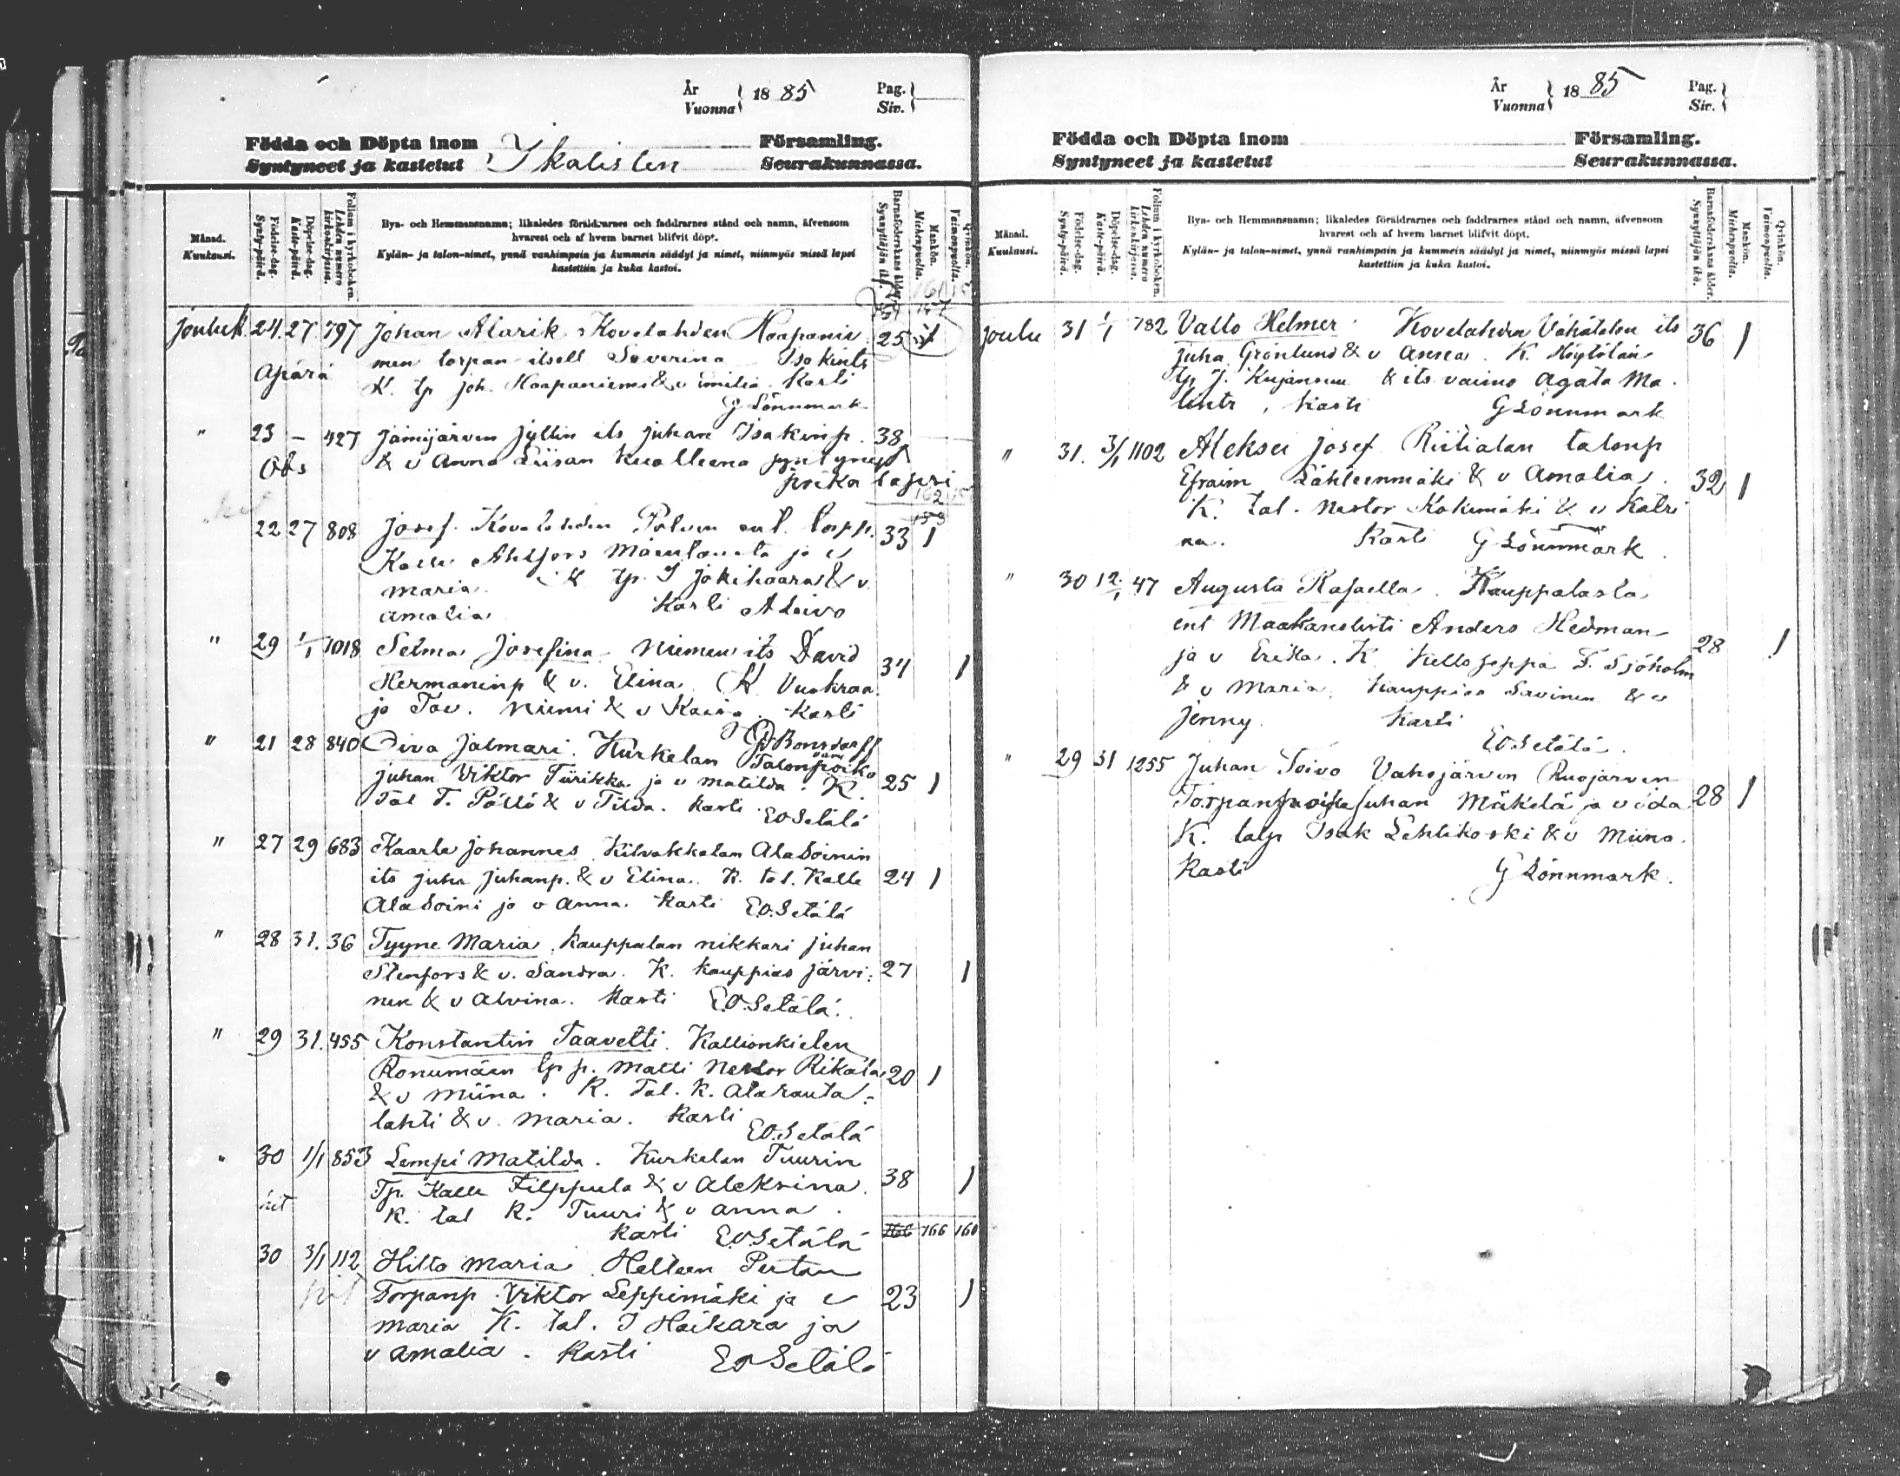 År
Vuonna
1885
Pag.
Siv.
Födda och Döpta inom
Syntyneet ja kastetut
Ikalisten
Församling.
Seurakunnassa.
Månad.
Kuukausi.
Födelse-dag.
Synty-päivä.
Döpelse-dag.
Kaste-päivä.
Folium i kyrkoboken.
Lehden numero kirkonkirjassa.
Bya- och Hemmansnamn; likaledes föräldrarnes och faddrarnes stånd och namn, äfvensom
hvarest och af hvem barnet blifvit döpt.
Kylän- ja talon-nimet, ynnä vanhimpain ja kummein säädyt ja nimet, niinmyös missä lapsi
kastettiin ja kuka kastoi.
Barnaföderskans ålder.
Synnyttäjän ikä.
Mankön.
Miehenpuolia.
Qvinkön.
Vaimonpuolia.
Jouluk. 24. 27. 797 Johan Alarik Kovelahden Haapanie
men torpan itsell Severina Isokints 25
Apärä K. tp Joh. Haapaniemi & v Emilia. Kasti
G Lönnmark
" 23 — 427 Jämijärven Jyllin its Juhan Isakinp. 38
Obs & v Anna Liisan kuolleena syntynyt
poika lapsi
22 27 808 Josef. Kovelahden ent. torpp. 33 1
Kalle Ahlfors ja v
Maria. K tp. J Jokihaara & v
Amalia Kasti A Leivo
" 29 1/1 1018 Selma Josefina Niemen its David 34 1
Hermaninp & v. Elina K
ja Niemi & v Kaisa. Kasti
Bonsdorff
" 21 28 840 Oiva Jalmari. Kurkelan Talonpoika
Juhan Viktor Tiirikka ja v Matilda. K. 25 1
Tal T. Pöllö & v Tilda. Kasti EO Setälä
" 27 29 683 Kaarlo Johannes Kilvakkalan AlaSoinin
its Juha Juhanp. & v Elina. K. tal. Kalle 24 1
AlaSoini ja v Anna. Kasti E.O. Setälä
" 28 31. 36 Tyyne Maria. Kauppalan nikkari Juhan
Stenfors & v. Sandra. K. Kauppias Järvi- 27 1
nen & v Alvina. Kasti E.O. Setälä.
" 29 31. 455 Konstantin Taavetti. Kallionkielen
Ronumäen tp p. Matti Nestor Rikala 20 1
& v Miina. K. Tal. K. Alarauta-
lahti & v. Maria. Kasti
EO. Setälä
" 30 1/1 853 Lempi Matilda. Kurkelan Tuurin
Tp. Kalle Filppula & v Aleksina. 38 1
K. tal K. Tuuri & v Anna.
Kasti E.O Setälä 166 166 160
30 3/1 112 Hilta Maria. Helteen Pertun
Torpanp Viktor Leppimäki ja v 23 1
Maria K. tal. J Haikara ja
v Amalia. Kasti EO Setälä
År
Vuonna
1885
Pag.
Siv.
Födda och Döpta inom
Syntyneet ja kastetut
Församling.
Seurakunnassa.
Månad.
Kuukausi.
Födelse-dag.
Synty-päivä.
Döpelse-dag.
Kaste-päivä.
Folium i kyrkoboken.
Lehden numero kirkonkirjassa.
Bya- och Hemmansnamn; likaledes föräldrarnes och faddrarnes stånd och namn, äfvensom
hvarest och af hvem barnet blifvit döpt.
Kylän- ja talon-nimet, ynnä vanhimpain ja kummein säädyt ja nimet, niinmyös missä lapsi
kastettiin ja kuka kastoi.
Barnaföderskans ålder.
Synnyttäjän ikä.
Mankön.
Miehenpuolia.
Qvinkön.
Vaimonpuolia.
Joulu 31 1/1 782 Valto Helmer. Kovelahden Vähätalon its 36 1
Juha Grönlund & v Anna. K. Höytölän
tp J. Kujansuu & its vaimo Agata Ma-
Kasti G Lönnmark
" 31. 3/1 1102 Aleksei Josef Riitialan talonp
Efraim Lähteenmäki & v Amalia. 32 1
K. tal. Nestor Kokemäki & v Katri
na. Kasti G Lönnmark
" 30 12/1 47 Augusta Rafaella. Kauppalasta
ent Maakanslisti Anders Hedman 28 1
ja v Erika. K. Kelloseppä F. Sjöholm
& v Maria. Kauppias Savinen & v
Jenny. Kasti
EO Setälä.
" 29 31 1255 Juhan Toivo Vahojärven Ruojärven
Torpanpoika Juhan Mäkelä ja v Ida 28 1
K. talp Isak Lehtikoski & v Miina.
Kasti G Lönnmark.